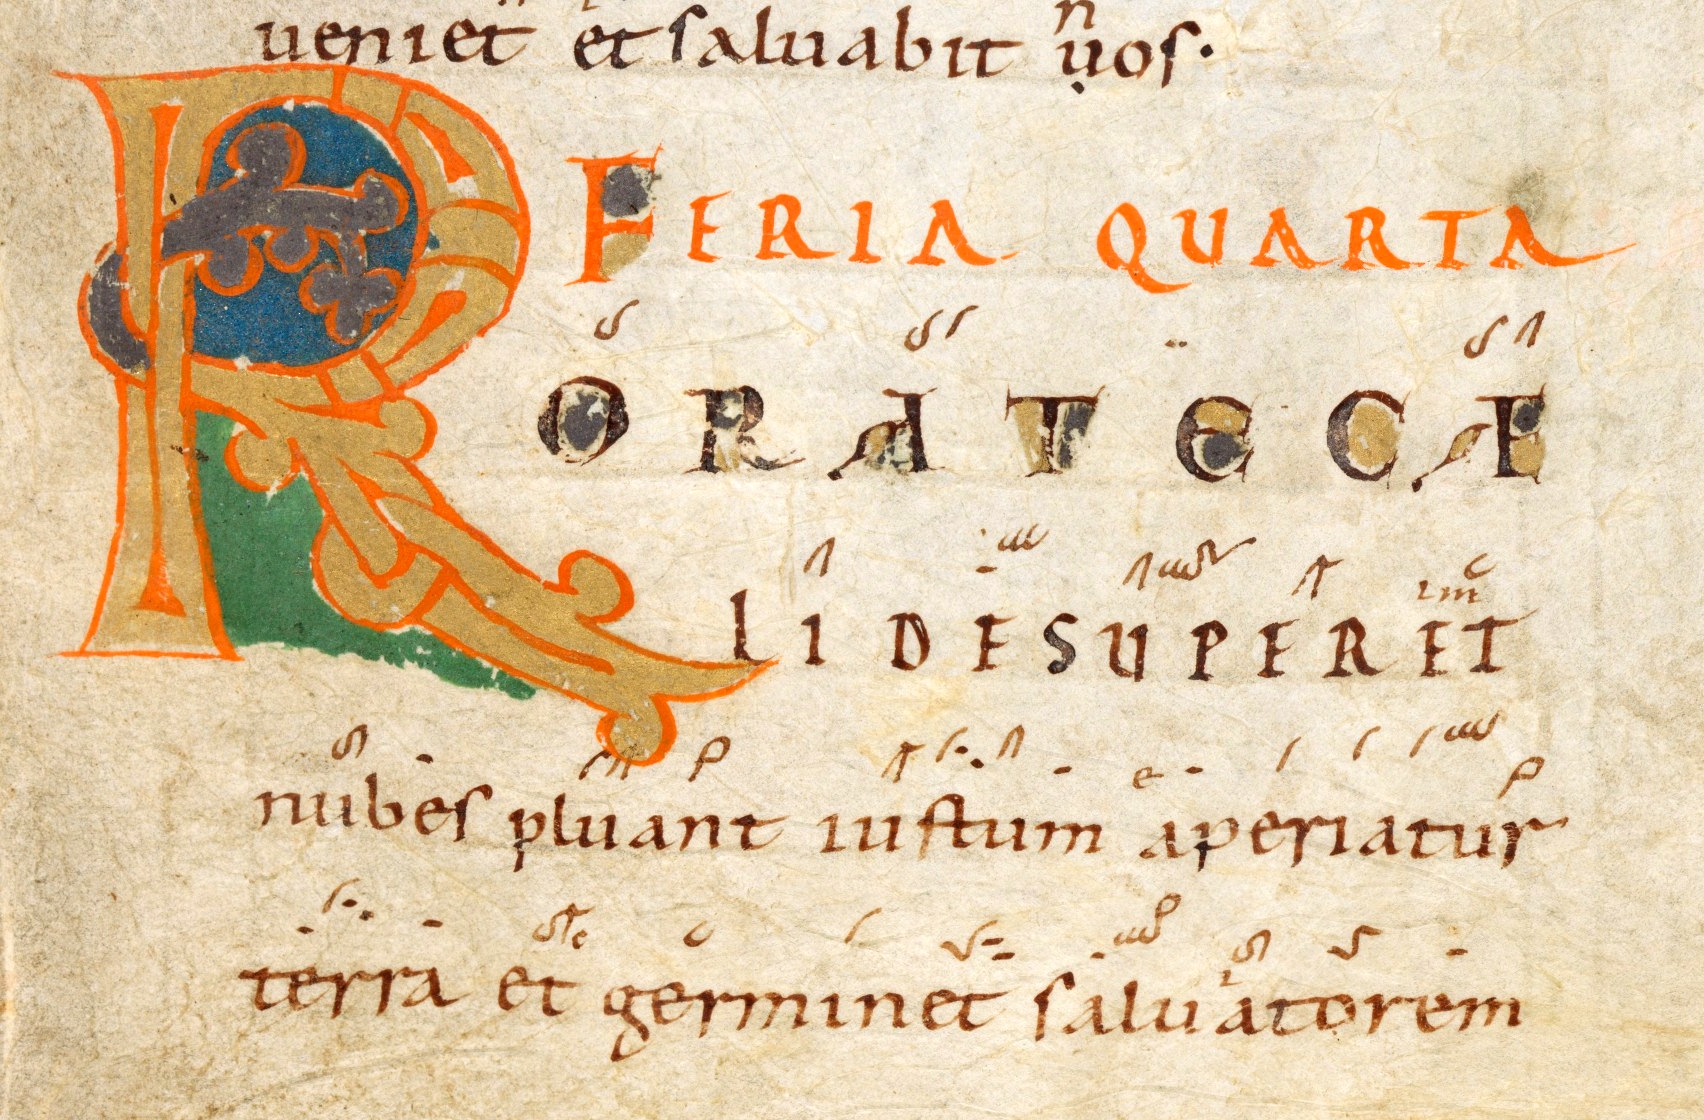 ueniet et saluabit uos.
FERIA QUARTA
RORATE CAE
LI DESUPER ET
nubes pluant iustum aperiatur
terra et germinet saluatorem